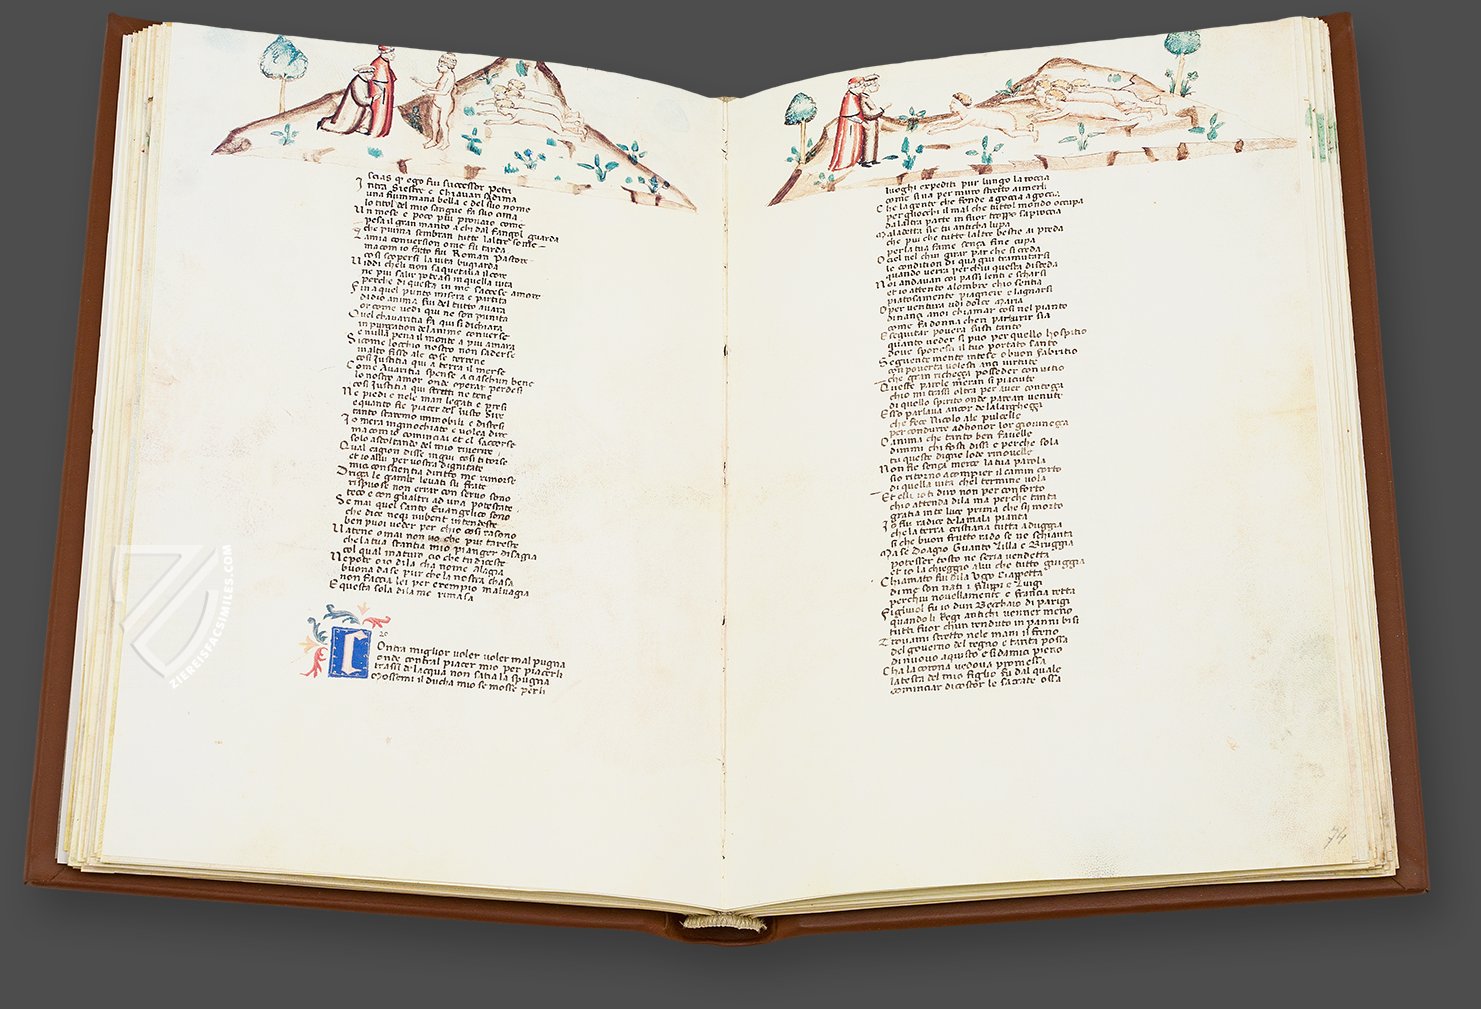 scias q' ego fui successor Petri
Intra Siestre e Chiavari sadima
una fiummana bella e del suo nome
lo titol del mio sangue fa sua cima
Un mese e poco piu provaio come
pesa il gran manto a chi dal fango il guarda
che piuma sembran tutte laltre some
La mia conversion ome fu tarda
ma com io fatto fui Roman Pastore
cosi scopersi la vita bugiarda
Viddi cheli non saquetava il core
ne piu salir poteasi inquella vita
perche di questa in me saccese amore
Fin a quel punto misera e partita
didio anima fui del tutto avara
or come vedi qui ne son punita
Quel chavaritia fa qui si dichiara
in purgation del anime converse
e nulla pena il monte a piu amara
Si come locchio nostro non saderse
in alto fisso ale cose terrene
cosi Justitia qui a terra il merse
Come Avaritia spense a ciaschun bene
lo nostro amor onde operar perdesi
cosi Justitia qui stretti ne tene
Ne piedi e nele man legati e presi
e quanto fie piacer del Justo Sire
tanto staremo immobili e distesi
Io mera inginochiato e volea dire
ma com io cominciai et el saccorse
solo ascoltando del mio riverire
Qual cagion disse inqui cosi ti torse
et io allui per vostra dignitate
mia conscientia diritto me rimorse
Driza le gambe levati su frate
rispuose non errar con servo sono
teco e con gli altri ad una potestate
Se mai quel santo Evangelico sono
che dice neqz nubent intendeste
ben puoi veder per chio cosi rasono
Vatene o mai non vo che piu tareste
che la tua stantia mio pianger disagia
col qual maturo cio che tu diceste
Nepote o io dila cha nome Alagia
buona da se pur che la nostra chasa
non faccia lei per exempio malvagia
E questa sola dila me rimasa
20
COntra miglior voler voler mal pugna
onde contral piacer mio per piacerli
trassi de lacqua non satia la spugna
Mossemi il ducha mio se mosse perli
luoghi expediti pur lungo la roccia
come si va per muro stretto aimerli
Che la gente che fonde a goccia a goccia
per gliocchi il mal che tuttol mondo occupa
da laltra parte in fuor troppo sapiroccia
Maladetta sie tu anticha lupa
che piu che tutte laltre bestie ai preda
per la tua fame senza fine cupa
O ciel nel chui girar par che si creda
le condition di qua giu tramutarsi
quando verra per chui questa disceda
Noi andavan coi passi lenti e scharsi
et io attento alombre chio sentia
piatosamente piagnere e lagnarsi
O per ventura udi dolce Maria
dinanzi anoi chiamar cosi nel pianto
come fa donna chen parturir sia
E seguitar povera fusti tanto
quanto veder si puo per quello hospitio
dove sporesti il tuo portato santo
Seguente mente intese o buon Fabritio
con poverta volesti anzi virtute
che gran richezza posseder con vitio
Queste parole meran si piaciute
chio mi trassi oltra per aver contezza
di quello spirito onde parean venute
Esso parlava ancor de la larghezza
che fece Nicolo ale pulcelle
per condurre adhonor lor giovinezza
O anima che tanto ben favelle
dimmi chi fosti dissi e perche sola
tu queste digne lode rinovelle
Non fie senza merce la tua parola
sio ritorno acompier il camin corto
di quella vita chel termine vola
Et elli io ti diro non per conforto
chio attenda dila ma perche tanta
gratia in te luce prima che sii morto
Io fui radice dela mala pianta
che la terra cristiana tutta aduggia
si che buon frutto rado se ne schianta
Ma se Doagio Guanto Lilla e Bruggia
potesser tosto ne seria vendetta
et io la chieggio a lui che tutto giuggia
Chiamato fui dila Ugo Ciappetta
di me son nati i Filippi e Luigi
per chui novellamente e Francia retta
Figliuol fu io dun Becchaio di parigi
quando li Regi antichi venner meno
tutti fuor chun renduto in panni bisi
Trovami stretto nele mani il freno
del governo del regno e tanta possa
di nuovo aquisto e sidamici pieno
Cha la corona vedova promossa
la testa del mio figlio fu dal quale
cominciar di costor le sacrate ossa
74
ZIEREISFACSIMILES.COM